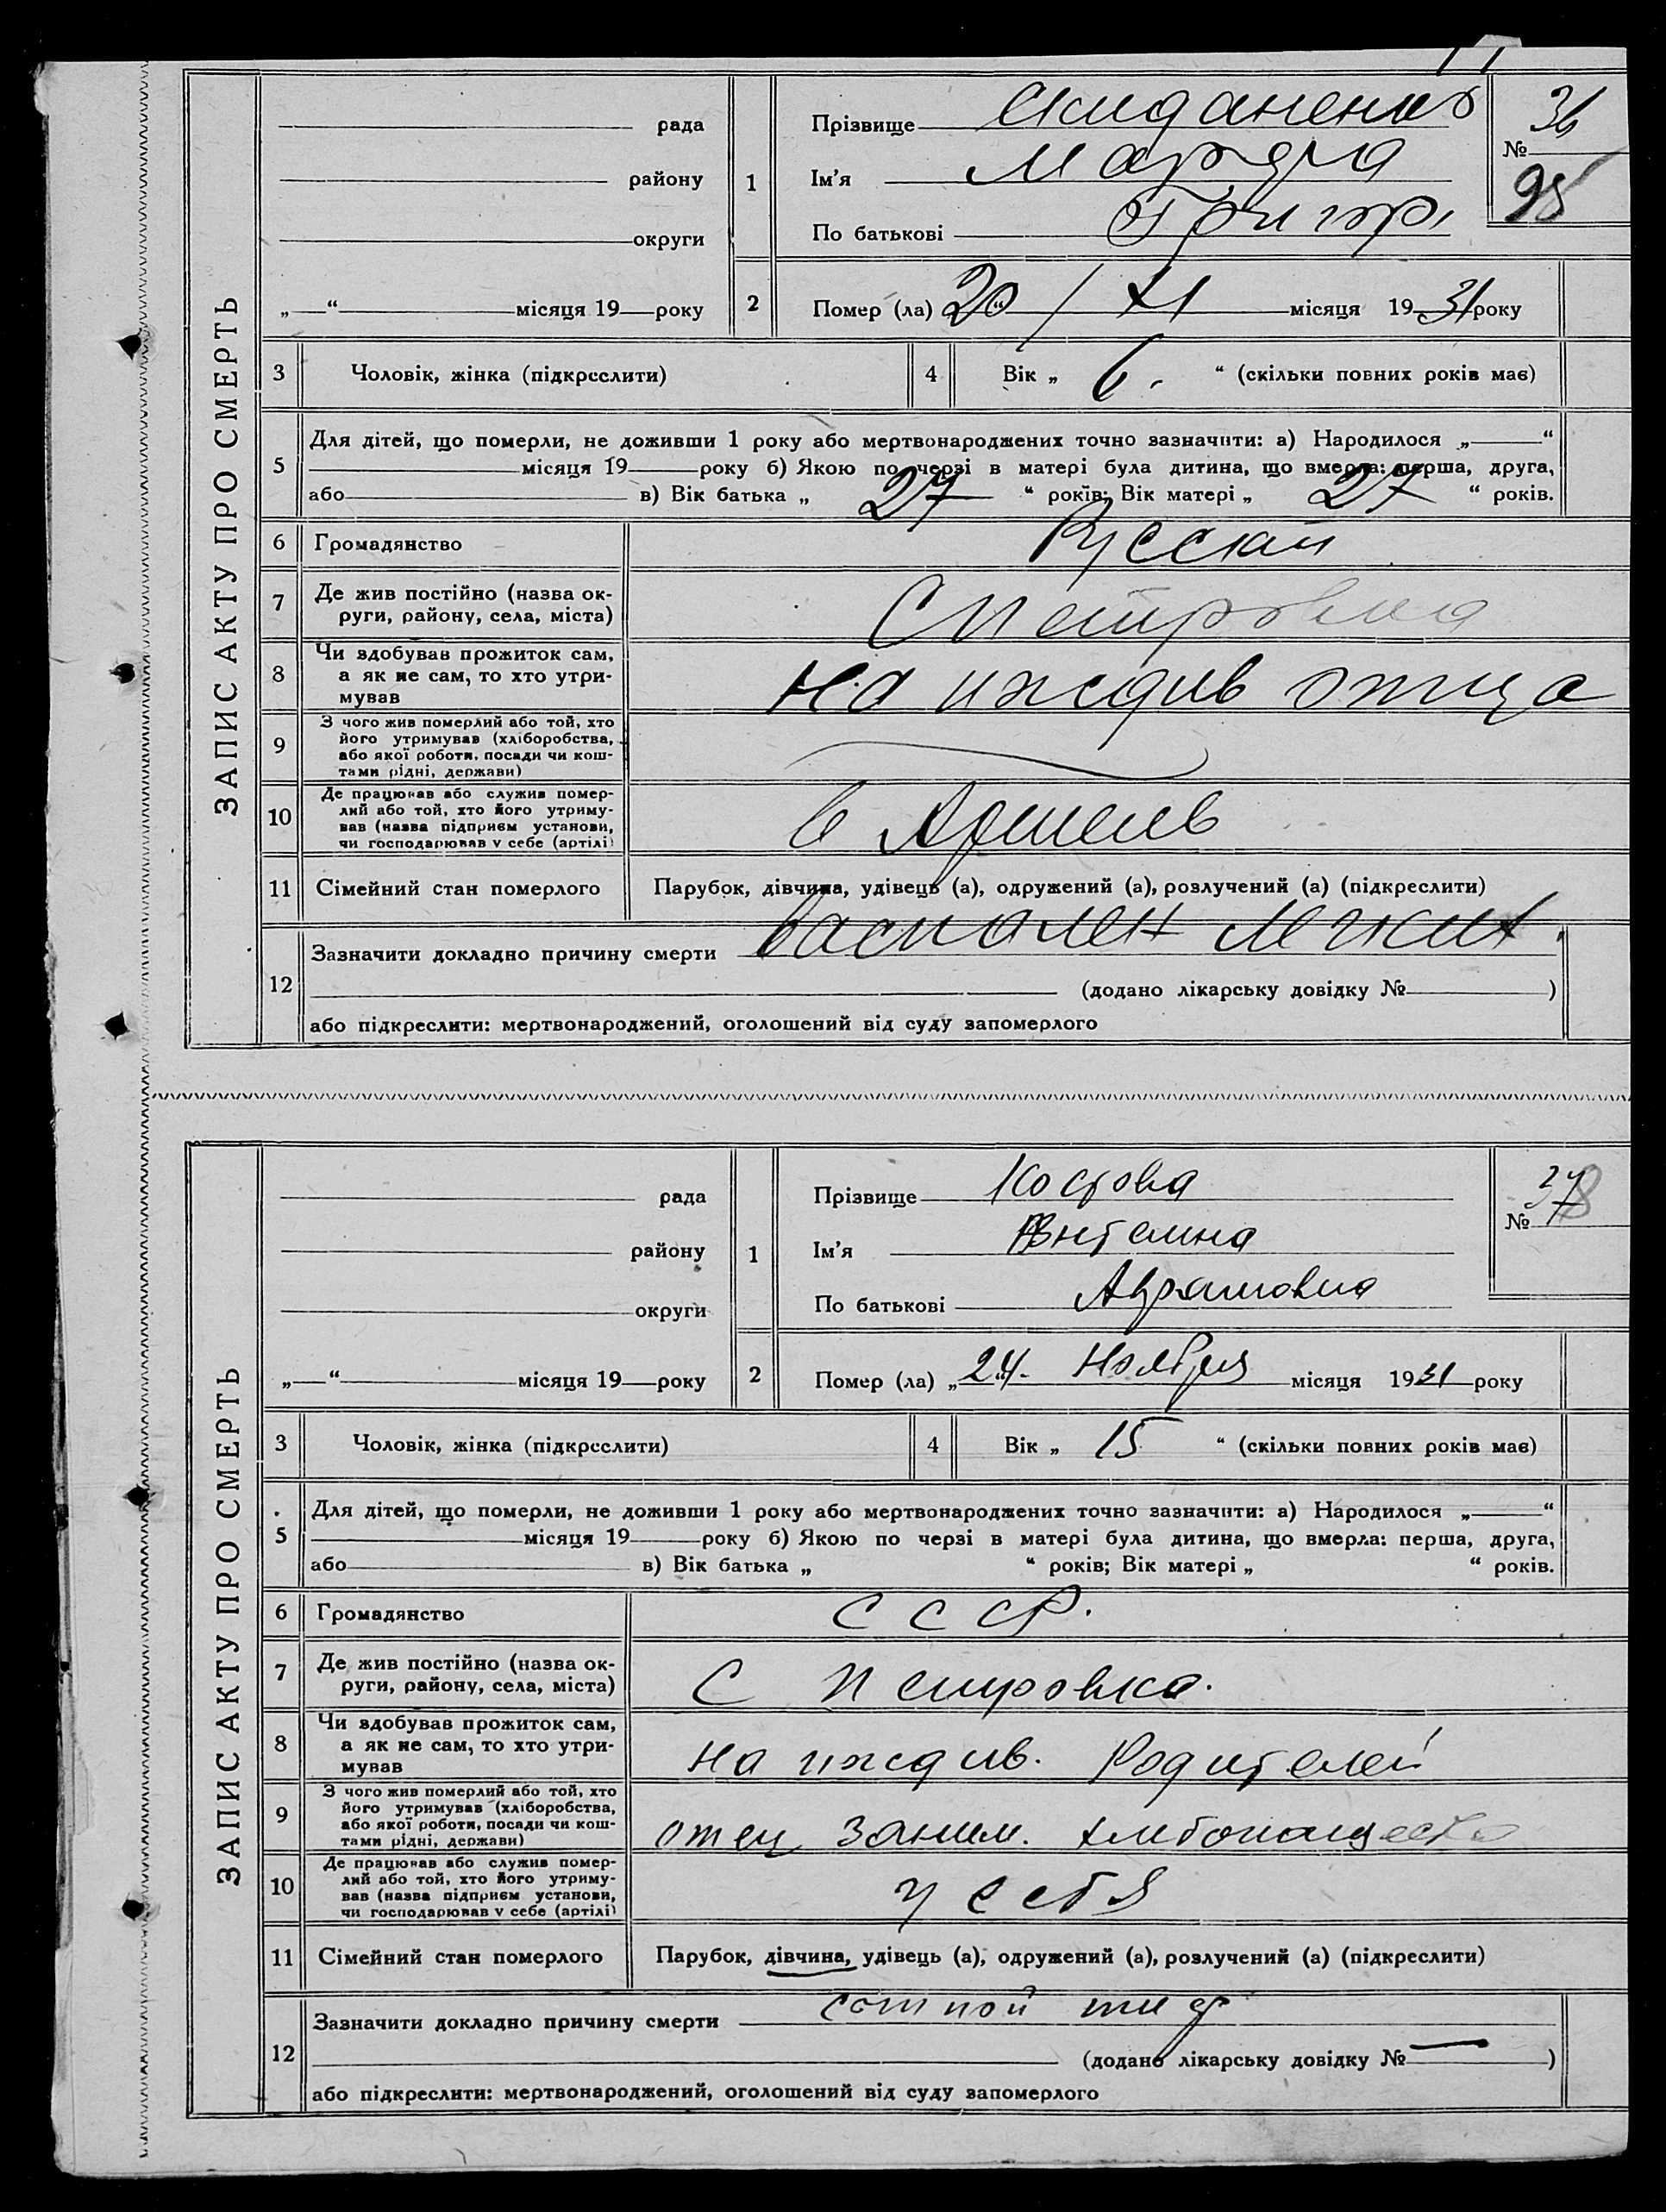 ЗАПИС АКТУ ПРО СМЕРТЬ
рада
району
округи
„ “ місяця 19 року
1
Прізвище Скиданенко
Ім'я Марфа
По батькові Григор.
№ 36
98
2
Помер (ла) 20 / XI місяця 1931 року
3
Чоловік, жінка (підкреслити)
4
Вік „ 6. “ (скільки повних років має)
5
Для дітей, що померли, не доживши 1 року або мертвонароджених точно зазначити: а) Народилося „ “
місяця 19 року б) Якою по черзі в матері була дитина, що вмерла: перша, друга,
або в) Вік батька „ 27 “ років; Вік матері „ 27 “ років.
6
Громадянство
Русский
7
Де жив постійно (назва ок-
руги, району, села, міста)
С Петровка
8
Чи здобував прожиток сам,
а як не сам, то хто утри-
мував
На иждив отца
9
З чого жив померлий або той, хто
його утримував (хліборобства,
або якої роботи, посади чи кош-
тами рідні, держави)
10
Де працював або служив помер-
лий або той, хто його утриму-
вав (назва підприєм установи,
чи господарював у себе (артілі)
в Артель
11
Сімейний стан померлого
Парубок, дівчина, удівець (а), одружений (а), розлучений (а) (підкреслити)
12
Зазначити докладно причину смерти воспален легких.
(додано лікарську довідку № )
або підкреслити: мертвонароджений, оголошений від суду запомерлого
ЗАПИС АКТУ ПРО СМЕРТЬ
рада
району
округи
„ “ місяця 19 року
1
Прізвище Кострова
Ім'я
По батькові Аврамовна
№ 37
2
Помер (ла) „24. Ноября місяця 1931 року
3
Чоловік, жінка (підкреслити)
4
Вік „ 15 “ (скільки повних років має)
5
Для дітей, що померли, не доживши 1 року або мертвонароджених точно зазначити: а) Народилося „ “
місяця 19 року б) Якою по черзі в матері була дитина, що вмерла: перша, друга,
або в) Вік батька „ “ років; Вік матері „ “ років.
6
Громадянство
СССР.
7
Де жив постійно (назва ок-
руги, району, села, міста)
С Петровка.
8
Чи здобував прожиток сам,
а як не сам, то хто утри-
мував
на иждив. Родителей
9
З чого жив померлий або той, хто
його утримував (хліборобства,
або якої роботи, посади чи кош-
тами рідні, держави)
отец заним.
10
Де працював або служив помер-
лий або той, хто його утриму-
вав (назва підприєм установи,
чи господарював у себе (артілі)
у себя
11
Сімейний стан померлого
Парубок, дівчина, удівець (а), одружений (а), розлучений (а) (підкреслити)
12
Зазначити докладно причину смерти сыпной тиф
(додано лікарську довідку № — )
або підкреслити: мертвонароджений, оголошений від суду запомерлого